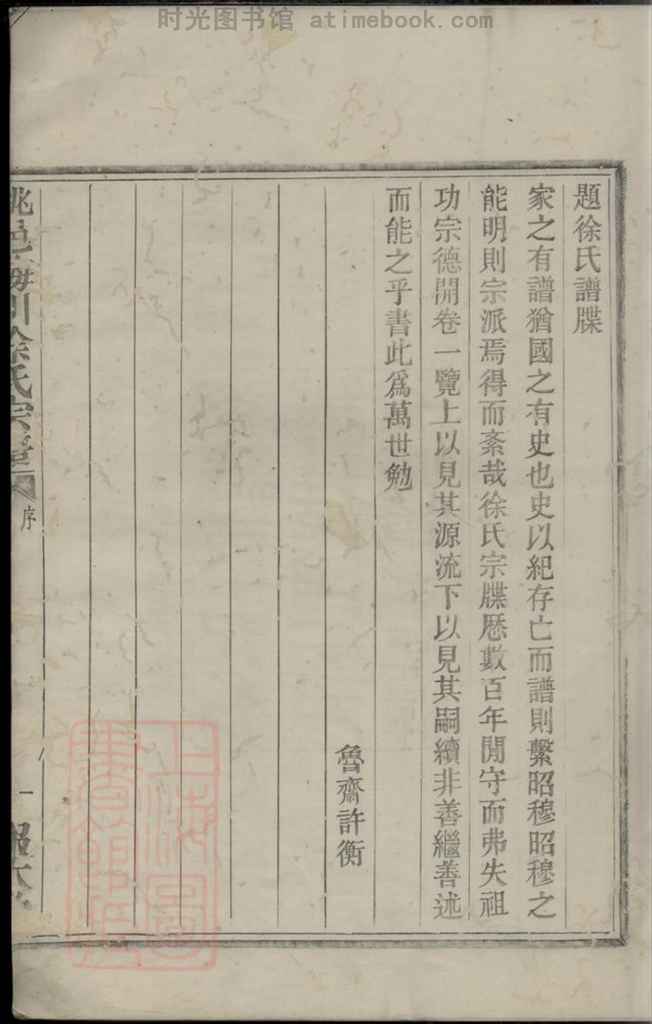 时光图书馆 atimebook.com
題徐氏譜牒
家之有譜猶國之有史也史以紀存亡而譜則繫昭穆昭穆之
能明則宗派焉得而紊哉徐氏宗牒歷數百年閒守而弗失祖
功宗德開卷一覽上以見其源流下以見其嗣續非善繼善述
而能之乎書此為萬世勉
魯齋許衡
川徐氏宗譜
序
一